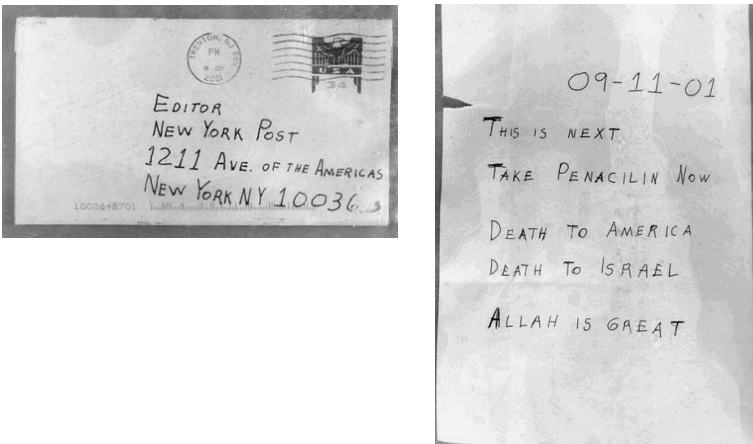 TRENTON, NJ
PM
2001
USA
34
EDITOR
NEW YORK POST
1211 AVE. OF THE AMERICAS
NEW YORK NY 10036
10036+6701
09-11-01
THIS IS NEXT
TAKE PENACILIN NOW
DEATH TO AMERICA
DEATH TO ISRAEL
ALLAH IS GREAT